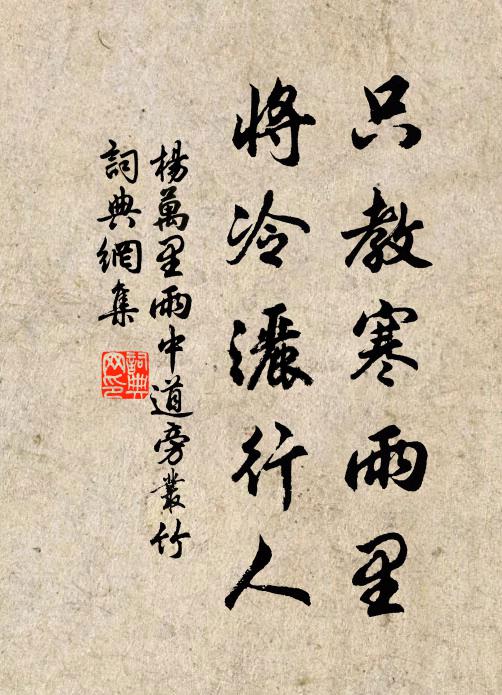 只教寒雨里
將冷灑行人
楊萬里雨中道旁叢竹
詞典網集
詞典網印